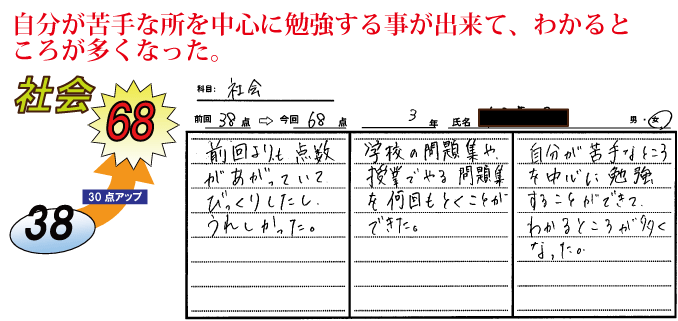 自分が苦手な所を中心に勉強する事が出来て、わかると
ころが多くなった。
社会
68
30点アップ
38
科目: 社会
前回 38 点 ⇨ 今回 68 点 3 年 氏名 男・女
前回よりも点数
があがっていて
びっくりしたし、
うれしかった。
学校の問題集や、
授業でやる問題集
を何回もとくことが
できた。
自分が苦手なところ
を中心に勉強
することができて、
わかるところが多く
なった。